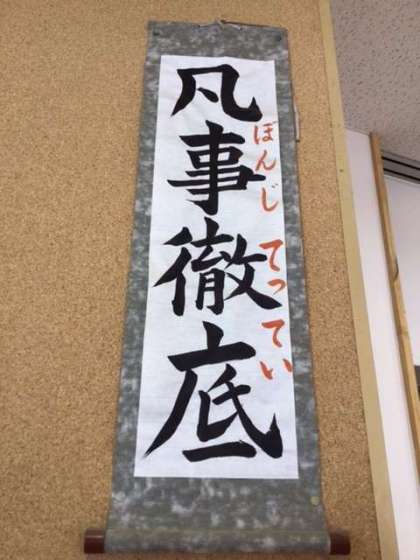 凡事徹底
ぼんじ てってい